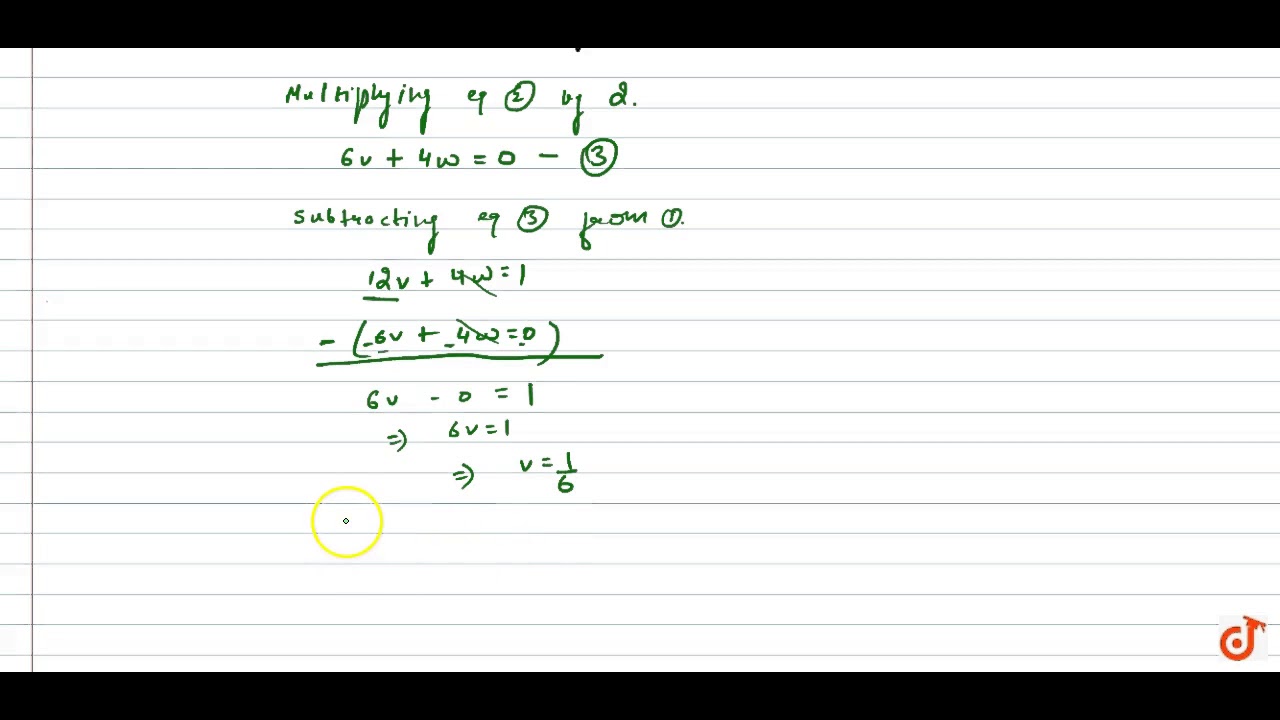 Multiplying eq ② by 2.
6v + 4w = 0 - ③
Subtracting eq ③ from ①.
12v + 4w = 1
- (-6v + -4w = 0)
6v - 0 = 1
⇒ 6v = 1
⇒ v = 1/6